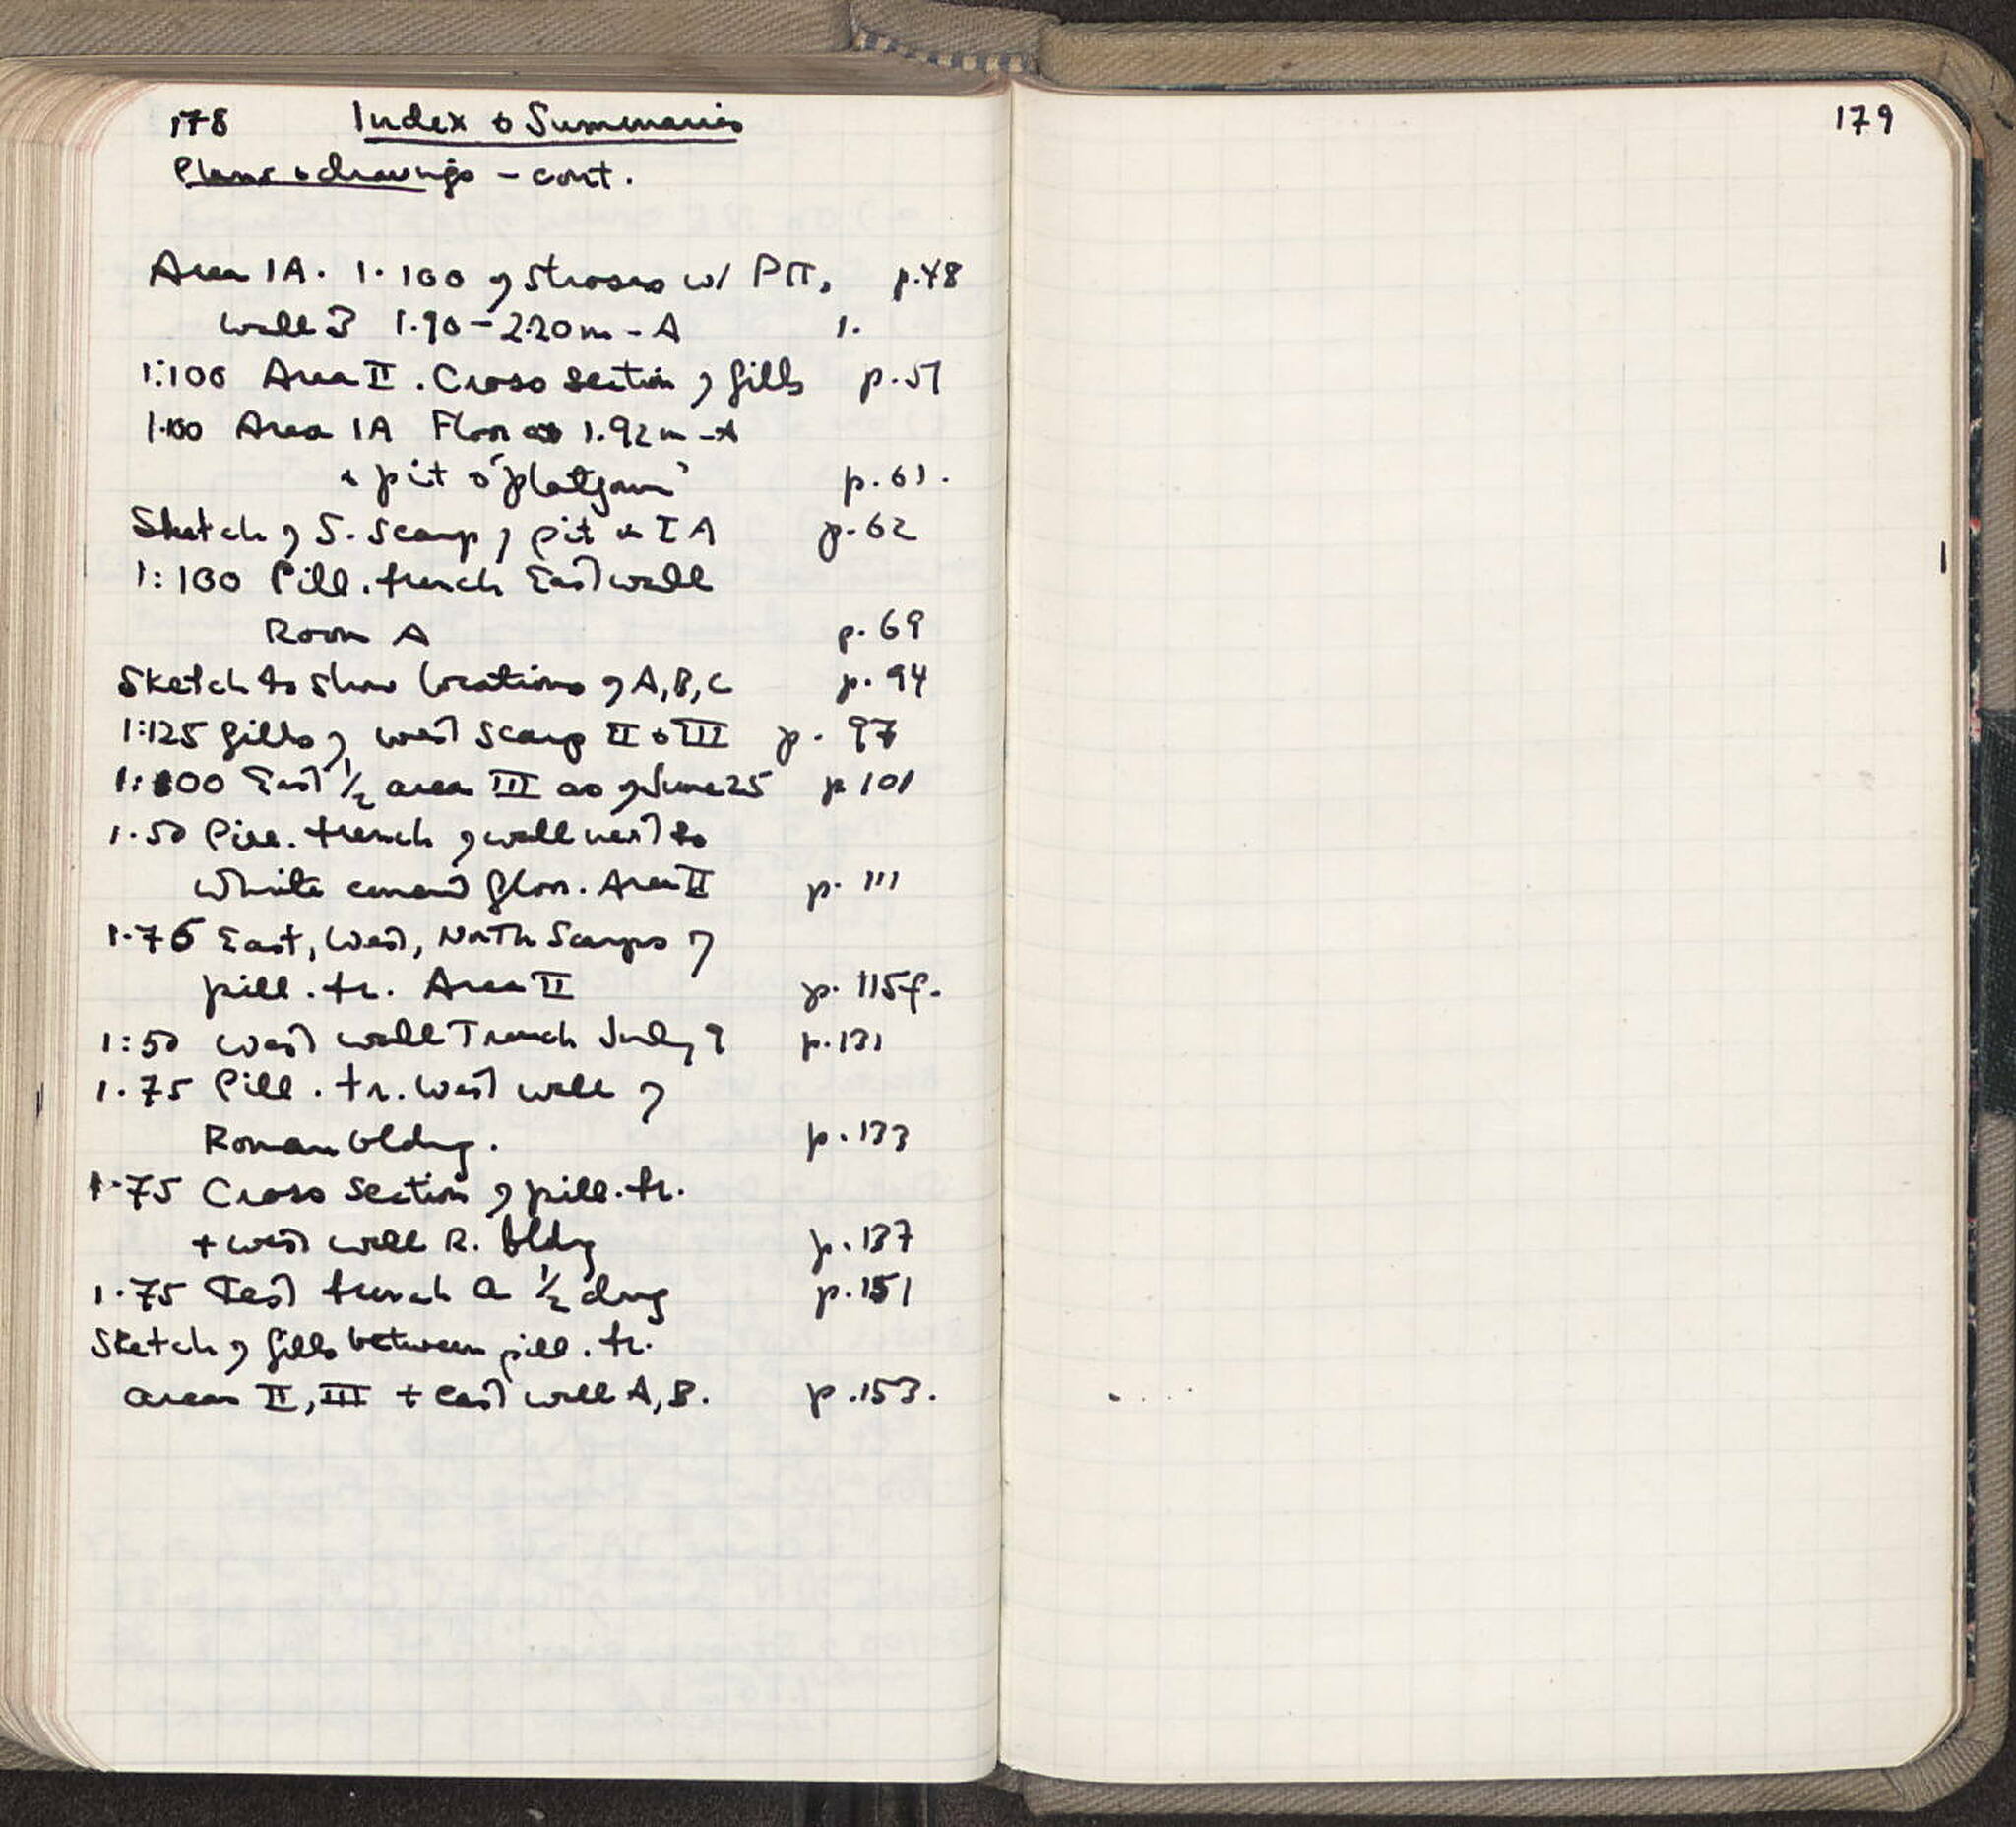 178 Index & Summaries
Plans & drawings - cont.
Area IA. 1.100 of stroses w/ PIT, p.48
Wall 3 1.90-2.20m - A 1.
1:100 Area II. Cross section of fills p.51
1.100 Area IA Floor 1.92m -A
+ pit & "platform" p.61.
Sketch of S. Scarp of pit in IA p.62
1:100 Pill. trench East wall
Room A p.69
Sketch to show locations of A,B,C p.94
1:125 fills of west scarp II & III p. 97
1:100 East 1/2 area III as of June 25 p 101
1.50 Pill. trench of wall next to
White cement floor. Area II p. 111
1.75 East, West, North Scarps of
pill. tr. Area II p. 115f.
1:50 West wall Trench July 9 p.131
1.75 Pill. tr. West wall of
Roman bldng. p.133
1.75 Cross Section of pill. tr.
+ west wall R. bldg p.137
1.75 Test trench a 1/2 dug p.151
Sketch of fills between pill. tr.
areas II, III + east wall A, B. p.153.
179